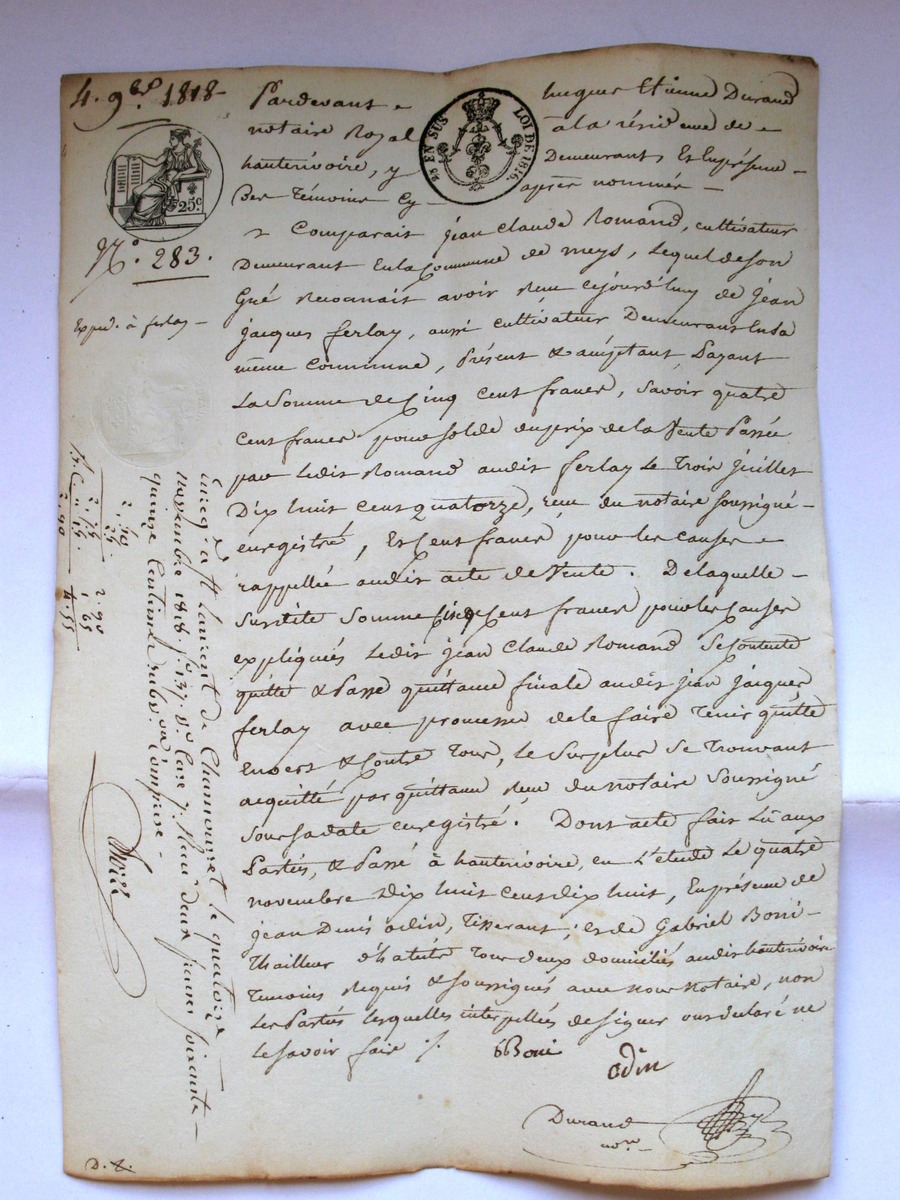 4. 9bre 1818
Pardevant hugues Etienne Durand
notaire Royal à la résidence de
hauterivoire, y Demeurant, Et Enprésence
Des Témoins Cy après nommés
EN SUS
LOI DE 1816.
25c.
N.o 283.
Comparait jean Claude Romand, cultivateur
Demeurant Enla Commune de meys, Lequel deson
Gré Reconnait avoir Recu cejourd'huy de jean
Expéd. à ferlay
jacques ferlay, aussi cultivateur Demeurant Enla
même Commune, Présent & acceptant, Payant
La Somme de Cinq cent francs, Savoir quatre
cent francs pour solde duprix de la Vente Passée
par Ledit Romand audit ferlay Le Trois juillet
Dix huit cent quatorze, recu du notaire soussigné
enregistré, Et Cent francs pour les causes
rappellée audit acte de Vente. Delaquelle
Susdite Somme Cinq Cent francs pour les Causes
expliquées Ledit jean Claude Romand Se Contente
quitte & Passe quittance finale audit jean jacques
ferlay avec promesse dele faire Tenir quitte
Envers & Contre Tous, le Surplus Se Trouvant
acquitté par quittance Recu du notaire Soussigné
Sous sa date enregistré. Dont acte fait Lû aux
Parties, & Passé à hauterivoire, en L'étude Le quatre
novembre Dix huit Cent Dix huit, Enprésence de
jean Denis odin, Tisserant, et de Gabriel Boni
Thailleur d'habits Tous deux domiciliés audit hauterivoire
Témoins Requis & Soussignés avec nous Notaire, non
Les Parties lesquelles interpellées de signer ont déclaré ne
Le savoir faire
GBoni
odin
Durand
nore
Enreg.é à St Laurent de Chamousset le quatorze
novembre 1818. f.o 137 v.o Case 7. Reçu deux francs soixante
quinze centimes subv.on comprise
2. 90
1. 65
4. 55